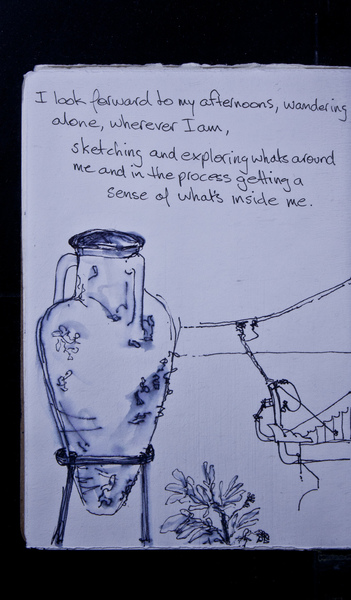 I look forward to my afternoons, wandering
alone, wherever I am,
sketching and exploring whats around
me and in the process getting a
sense of what's inside me.